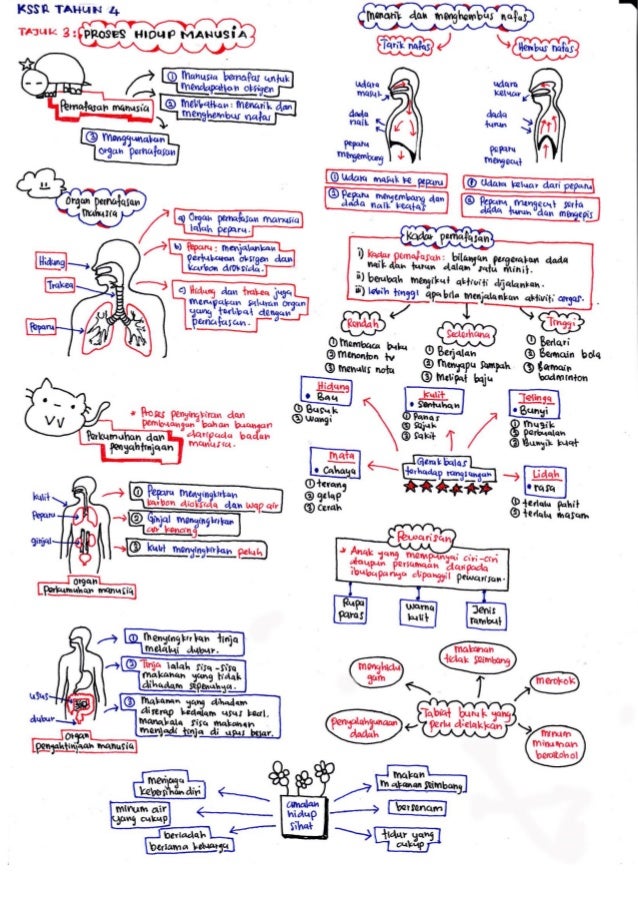 KSSR TAHUN 4
TAJUK 3: PROSES HIDUP MANUSIA
Pernafasan manusia
① Manusia bernafas untuk
mendapatkan oksigen
② Melibatkan: Menarik dan
menghembus nafas
③ Menggunakan
organ pernafasan
Organ pernafasan
manusia
Hidung
Trakea
Peparu
a) Organ pernafasan manusia
ialah peparu.
b) Peparu: menjalankan
pertukaran oksigen dan
karbon dioksida.
c) Hidung dan trakea juga
merupakan saluran organ
yang terlibat dengan
pernafasan.
Perkumuhan dan
Penyahtinjaan
* Proses penyingkiran dan
pembuangan bahan buangan
daripada badan
manusia.
kulit
Peparu
ginjal
organ
Perkumuhan manusia
① Peparu menyingkirkan
karbon dioksida dan wap air
② Ginjal menyingkirkan
air kencing
③ Kulit menyingkirkan peluh
usus
dubur
Organ
penyahtinjaan manusia
① Menyingkirkan tinja
melalui dubur.
② Tinja ialah sisa-sisa
makanan yang tidak
dihadam sepenuhnya.
③ Makanan yang dihadam
diserap kedalam usus kecil,
manakala sisa makanan
menjadi tinja di usus besar.
Menarik dan menghembus nafas
Tarik nafas
Hembus nafas
udara
masuk
dada
naik
peparu
mengembang
udara
keluar
dada
turun
peparu
mengecut
① Udara masuk ke peparu
② Peparu mengembang dan
dada naik keatas
① Udara keluar dari peparu
② Peparu mengecut serta
dada turun dan mengepis
Kadar pernafasan
i) kadar pernafasan: bilangan pergerakan dada
naik dan turun dalam satu minit.
ii) berubah mengikut aktiviti dijalankan.
iii) lebih tinggi apabila menjalankan aktiviti cergas.
Rendah
① Membaca buku
② Menonton tv
③ menulis nota
Sederhana
① Berjalan
② Menyapu sampah
③ Melipat baju
Tinggi
① Berlari
② Bermain bola
③ Bermain
badminton
Hidung
• Bau
① Busuk
② Wangi
Kulit
• Sentuhan
① Panas
② Sejuk
③ Sakit
Telinga
• Bunyi
① Muzik
② perbualan
③ Bunyik kuat
Mata
• Cahaya
① terang
② gelap
③ cerah
Gerak balas
terhadap rangsangan
Lidah
• rasa
① terlalu pahit
② terlalu masam
Pewarisan
* Anak yang mempunyai ciri-ciri
ataupun persamaan daripada
ibubapanya dipanggil pewarisan.
Rupa
paras
Warna
kulit
Jenis
rambut
Tabiat buruk yang
perlu dielakkan
menghidu
gam
makanan
tidak seimbang
merokok
penyalahgunaan
dadah
minum
minuman
beralkohol
amalan
hidup
sihat
menjaga
kebersihan diri
minum air
yang cukup
beriadah
bersama keluarga
makan
makanan seimbang
bersenam
tidur yang
cukup